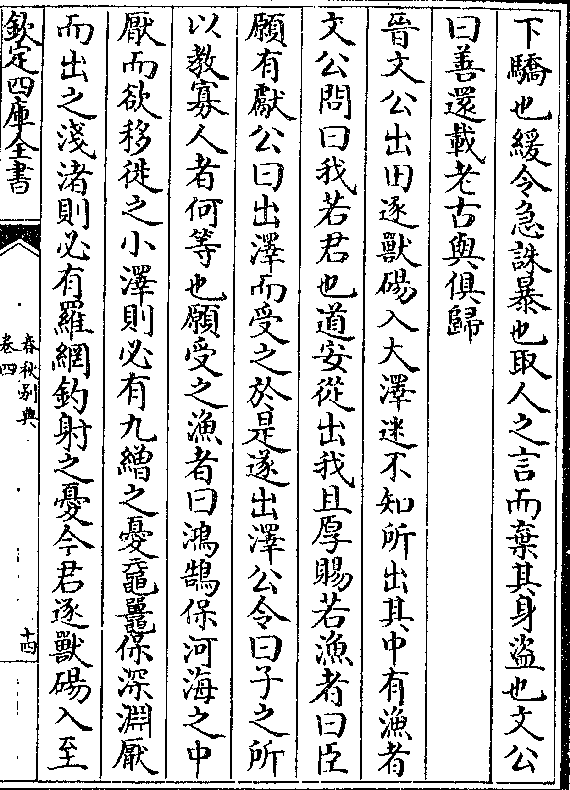 下驕也緩令急誅暴也取人之言而棄其身盗也文公
曰善還載老古與俱歸
晉文公出田逐獸碭入大澤迷不知所出其中有漁者
文公問曰我若君也道安從出我且厚賜若漁者曰臣
願有獻公曰出澤而受之於是遂出澤公令曰子之所
以教寡人者何等也願受之漁者曰鴻鵠保河海之中
厭而欲移徙之小澤則必有九繒之憂黿鼉保深淵厭
而出之淺渚則必有羅網釣射之憂今君逐獸碭入至
欽定四庫全書
春秋别典
卷四
十四